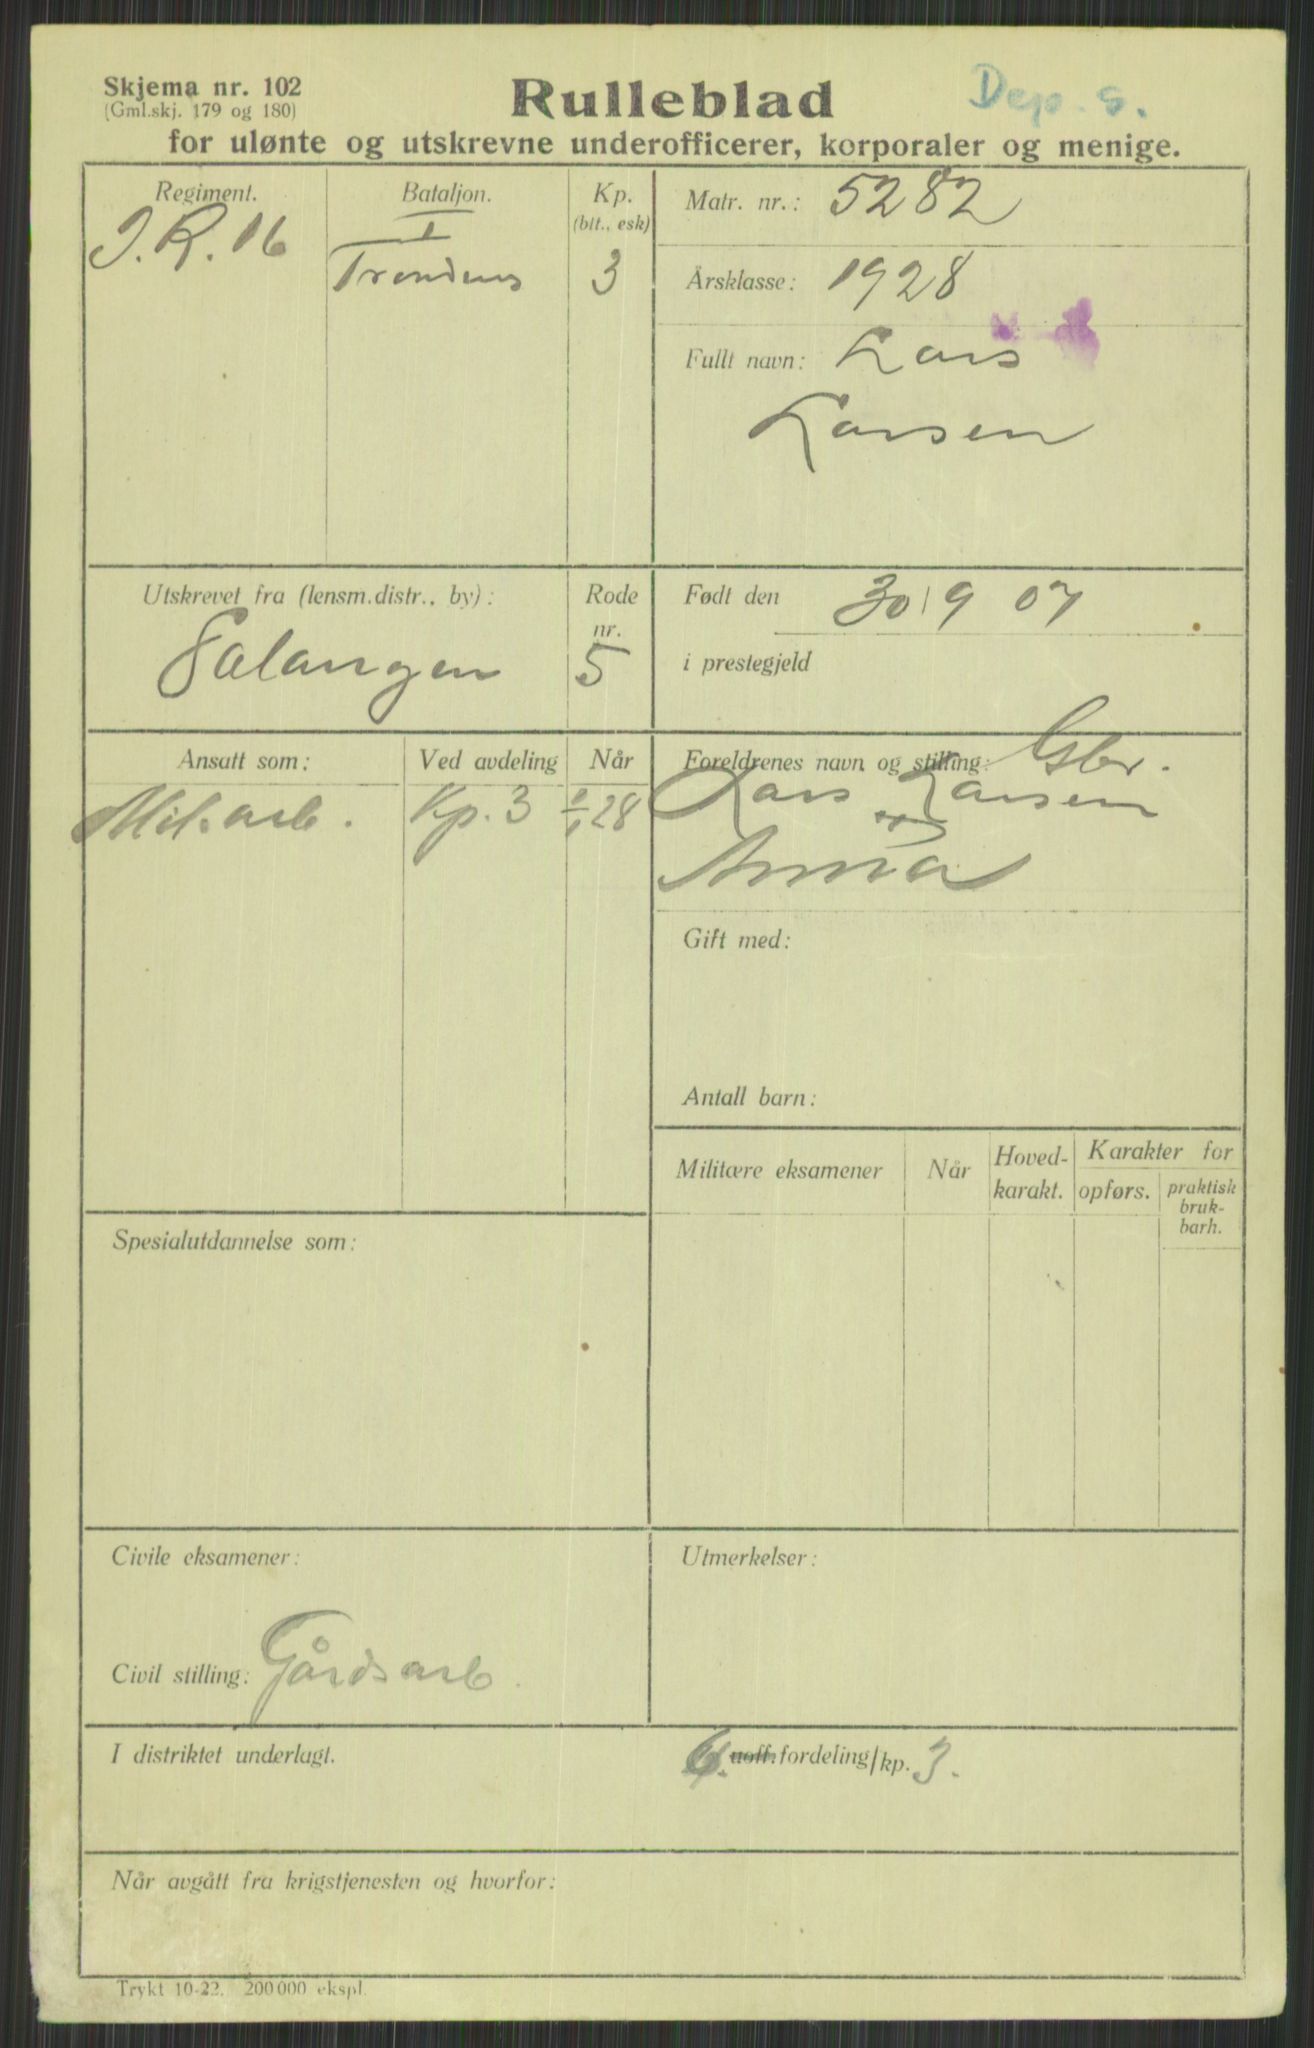 Skjema nr. 102
(Gml.skj. 179 og 180)
Rulleblad
Dep. s.
for ulønte og utskrevne underofficerer, korporaler og menige.
Regiment.
I.R. 16
Bataljon.
I
Trondenes
Kp.
(btt., esk)
3
Matr. nr.: 5282
Årsklasse: 1928
Fullt navn: Lars
Larsen
Utskrevet fra (lensm.distr., by):
Salangen
Rode
nr.
5
Født den 30/9 07
i prestegjeld
Ansatt som:
Ved avdeling
Når
Mil.arb.
Kp. 3
1/1 28
Foreldrenes navn og stilling: Gbr.
Lars Larsen
og
Anna
Gift med:
Antall barn:
Militære eksamener
Når
Hoved-
karakt.
Karakter for
opførs.
praktisk
bruk-
barh.
Spesialutdannelse som:
Civile eksamener:
Civil stilling: Gårdsarb.
Utmerkelser:
I distriktet underlagt.
uoff. fordeling/kp. 3.
Når avgått fra krigstjenesten og hvorfor:
Trykt 10-22. 200 000 ekspl.